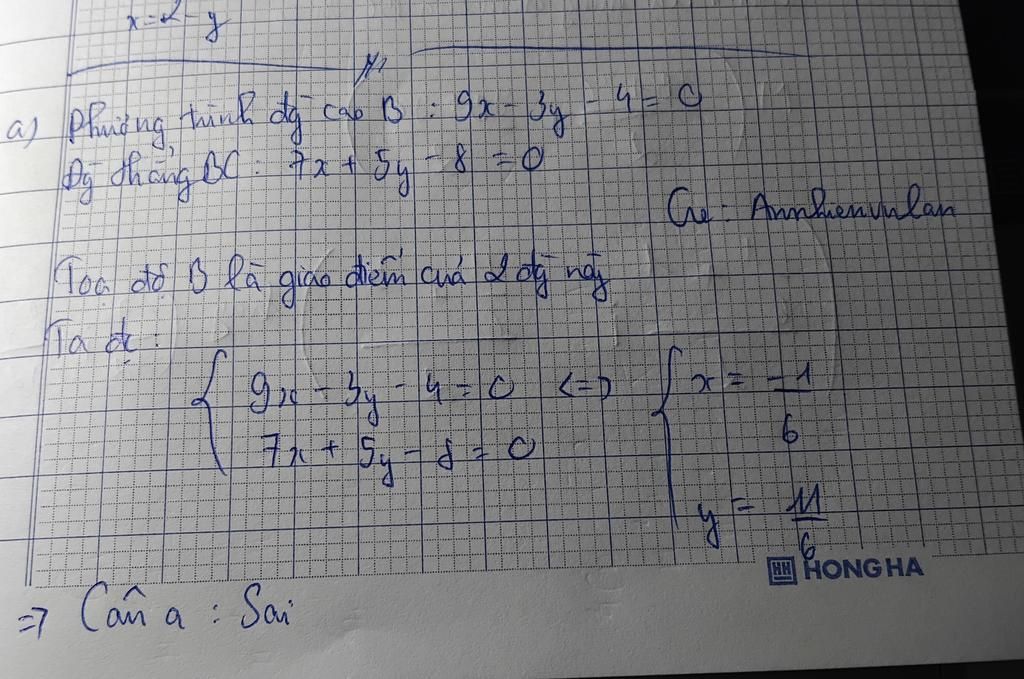 x = 2 - y
a) Phương trình đg cao B : 9x - 3y - 4 = 0
Đg thẳng BC : 7x + 5y - 8 = 0
Cre : Annhienvulan
Toạ độ B là giao điểm của 2 đg này
Ta đc :
9x - 3y - 4 = 0 <=> x = -1/6
7x + 5y - 8 = 0
y = 11/6
HH HONG HA
=> Câu a : Sai